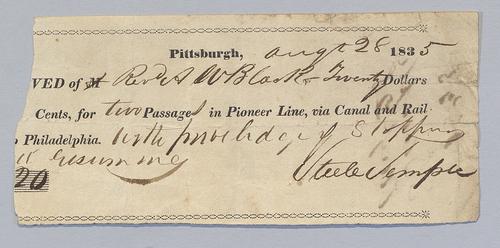 Pittsburgh, augt 28 1835
VED of M Revd A W Black Twenty Dollars
Cents, for two Passages in Pioneer Line, via Canal and Rail
Philadelphia. with priviledge of Stopping
& resuming
20 Steele Semple